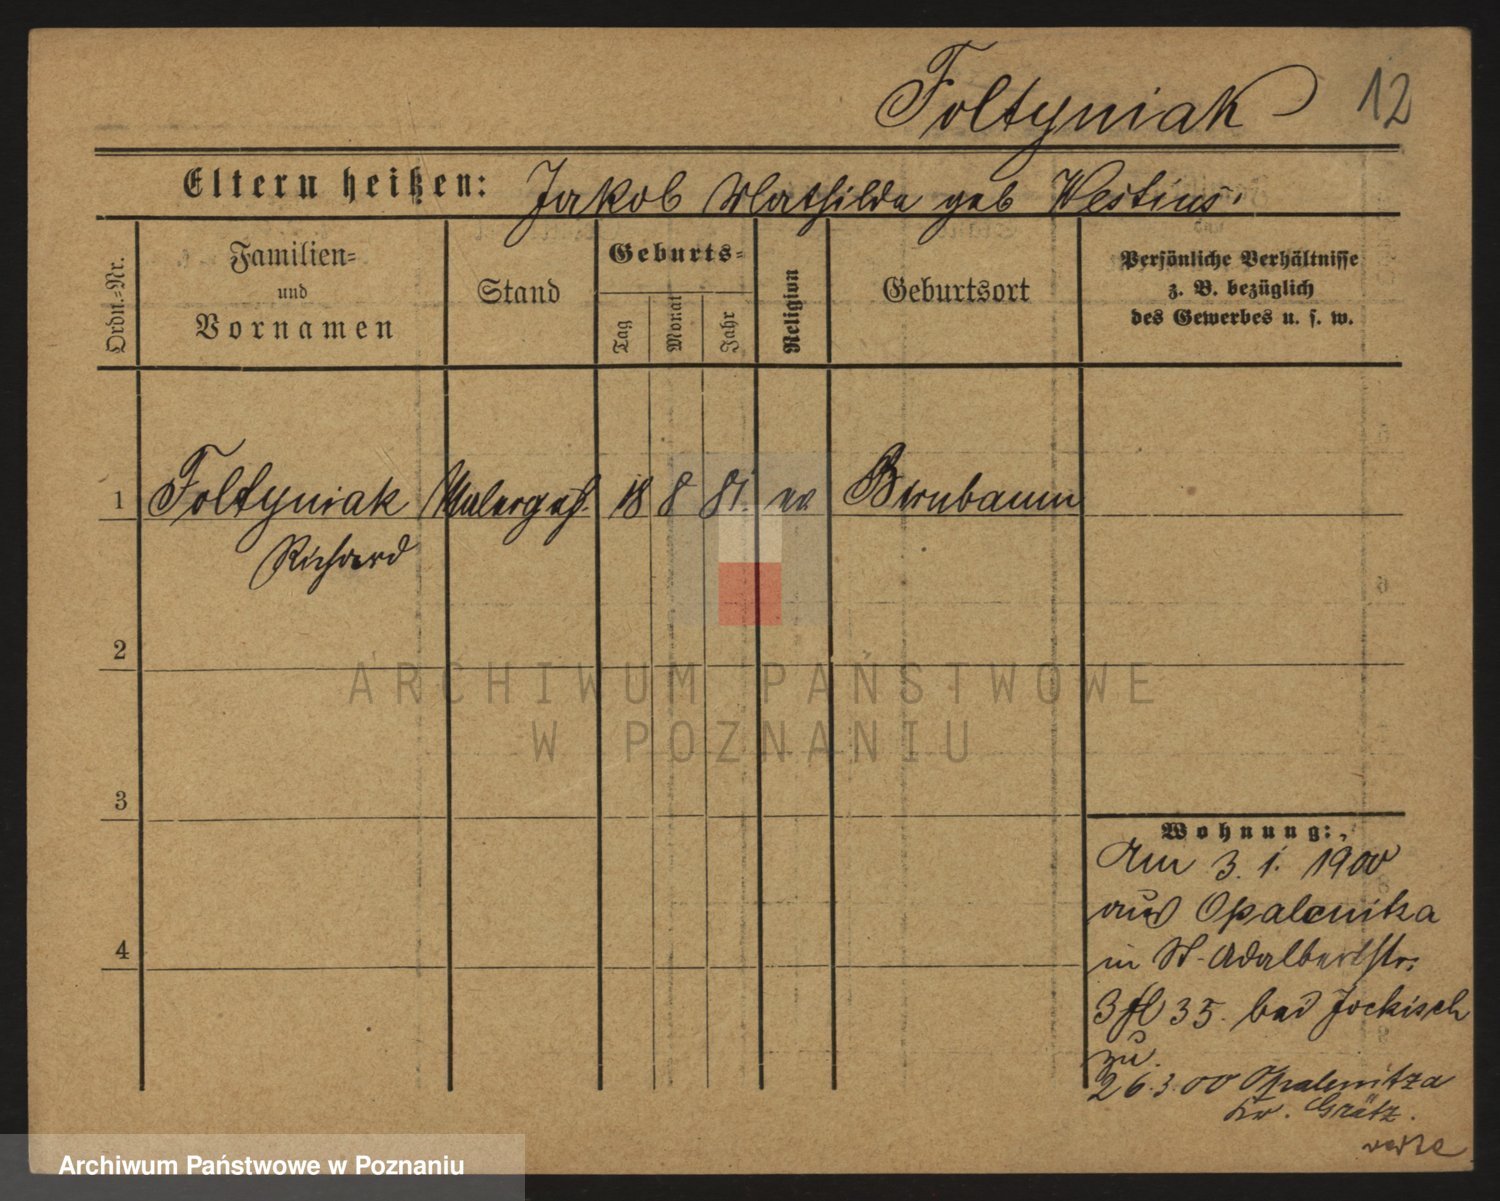 Foltyniak 12
Eltern heißen: Jakob Mathilda geb Westius.
Ordn.=Nr.
Familien=
und
Vornamen
Stand
Geburts=
Tag
Monat
Jahr
Religion
Geburtsort
Persönliche Verhältnisse
z. B. bezüglich
des Gewerbes u. s. w.
1 Foltyniak Malergeh. 18 8 81. ev. Birnbaum
Richard
2
ARCHIWUM PAŃSTWOWE
W POZNANIU
3
4
Wohnung:
Am 3. 1. 1900
aus Opalenitza
in St. Adalbertstr.
35. bei Jockisch
zu.
26.3.00 Opalenitza
Kr. Grätz.
Archiwum Państwowe w Poznaniu